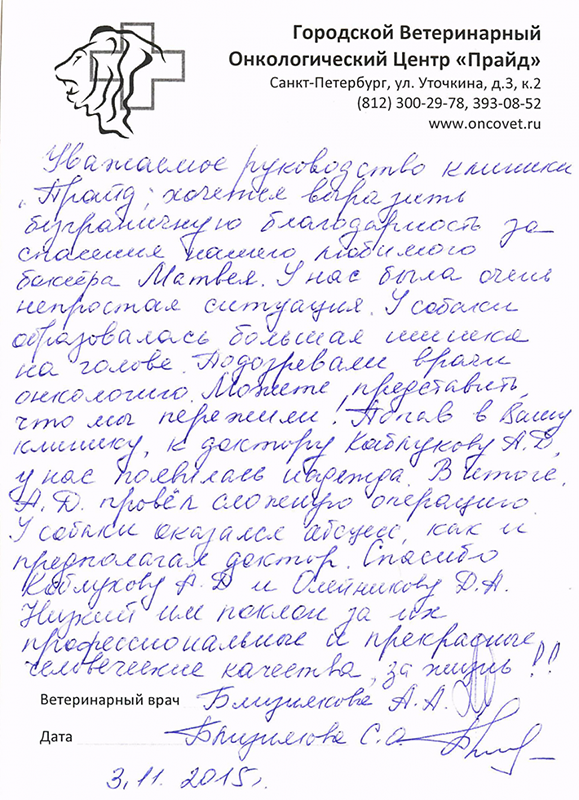 Городской Ветеринарный
Онкологический Центр «Прайд»
Санкт-Петербург, ул. Уточкина, д.3, к.2
(812) 300-29-78, 393-08-52
www.oncovet.ru
Уважаемое руководство клиники
„Прайд", хочется выразить
безграничную благодарность за
спасения нашего любимого
боксёра Матвея. У нас была очень
непростая ситуация. У собаки
образовалась большая шишка
на голове. Подозревали врачи
онкологию. Можете представить,
что мы пережили! Попав в Вашу
клинику, к доктору Каблукову А.Д,
у нас появилась надежда. В итоге,
А.Д. провёл сложную операцию.
У собаки оказался абсцесс, как и
предполагал доктор. Спасибо
Каблукову А.Д и Олейникову Д.А.
Низкий им поклон за их
профессиональные и прекрасные
человеческие качества, за жизнь!!
Ветеринарный врач Близнякова А.А.
Дата Близнякова С.О.
3.11.2015г.